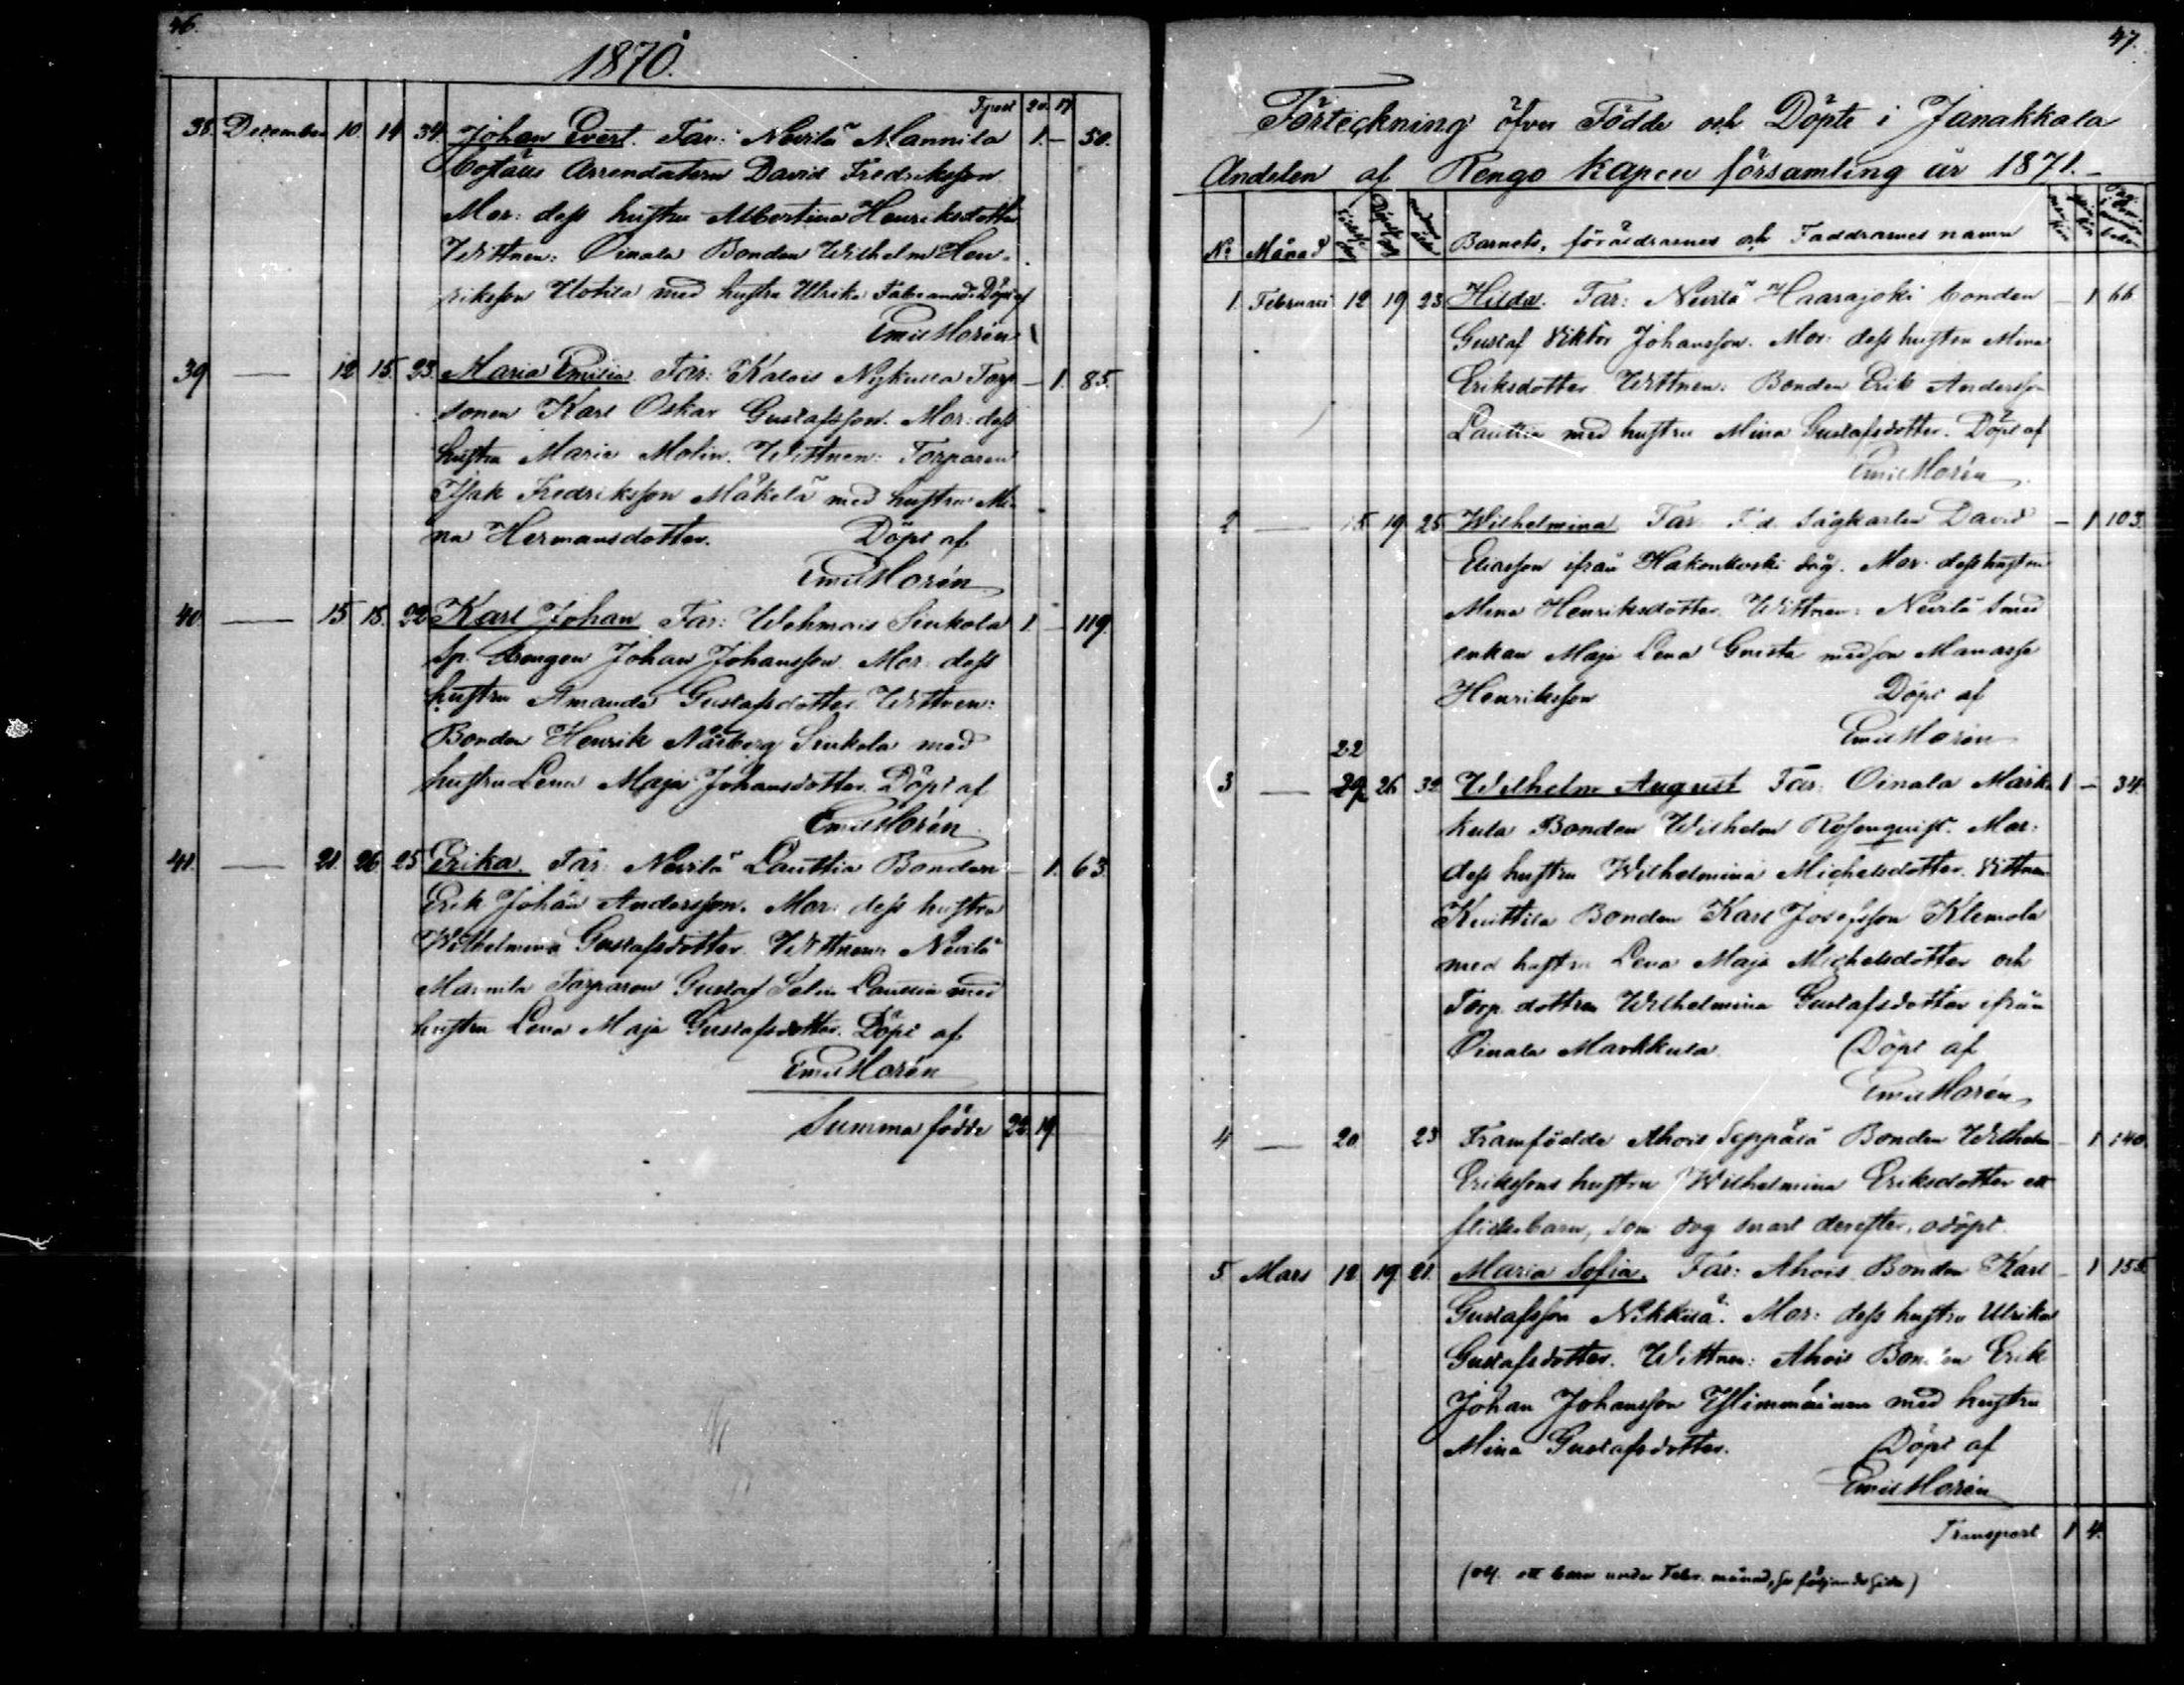 46.
1870.
Tport 20. 17
38. December 10. 14 34. Johan Evert. Far: Nevilä Mannila 1. — 50.
bostälts Arrendatorn David Fredriksson
Mor: dess hustru Albertina Henriksdotter
Wittnen: Oinala Bonden Wilhelm Hen-
riksson Uotila med hustru Ulrika Fabiansd: Döpt af
Emil Horén
39 — 12 15. 23. Maria Emilia. Far: Kalois Nykulla Torp — 1. 85.
sonen Karl Oskar Gustafsson. Mor: dess
hustru Maria Molin. Wittnen: Torparen
Isak Fredriksson Mäkelä med hustru Mi-
na Hermansdotter. Döpt af
Emil Horén
40. — 15 18. 22 Karl Johan Far: Wehmais Sinkola 1. — 119.
Sp. Drengen Johan Johansson. Mor: dess
hustru Amanda Gustafsdotter. Wittnen:
Bonden Henrik Nårberg Sinkola med
hustru Lena Maja Johansdotter. Döpt af
Emil Horén
41. — 21. 26 25 Erika. Far: Nevilä Lauttia Bonden — 1. 63.
Erik Johan Andersson. Mor: dess hustru
Wilhelmina Gustafsdotter. Wittnen: Nevilä
Mannila Torparen Gustaf Selin Lauttia med
hustru Lena Maja Gustafsdotter. Döpt af
Emil Horén
Summa födde 22. 19.
47.
Förteckning öfver Födde och Döpte i Janakkala
Andelen af Rengo Kapell församling år 1871.
No Månad Barnets, föräldrarnes och Faddrarnes namn
1. Februari 12 19 23 Hilda. Far: Nevilä Haarajoki bonden — 1 66
Gustaf Viktor Johansson. Mor: dess hustru Mina
Eriksdotter Wittnen: Bonden Erik Andersson
Lauttia med hustru Mina Gustafsdotter. Döpt af
Emil Horén
2 — 15 19. 25 Wilhelmina Far: F.d. sågkarlen David — 1 103.
Eliasson ifrån Hakonkoski såg. Mor: dess hustru
Mina Henriksdotter. Wittnen: Nevilä smed
enkan Maja Lena Gnista med son Manasse
Henriksson Döpt af
Emil Horén
22
3 — 29 26 32 Wilhelm August Far: Oinala Mark- 1 — 34.
kula Bonden Wilhelm Rosenquist. Mor:
dess hustru Wilhelmina Michelsdotter. Vittnen
Kuittila Bonden Karl Josefsson Klemola
med hustru Lena Maja Michelsdotter och
Torp. dottren Wilhelmina Gustafsdotter ifrån
Oinala Markkula. Döpt af
Emil Horén
4 — 20 23 Framfödde Ahois Seppälä Bonden Wilhelm — 1 140.
Erikssons hustru Wilhelmina Eriksdotter ett
flickebarn, som dog snart derefter, odöpt.
5. Mars 12. 19. 21. Maria Sofia. Far: Ahois Bonden Karl — 1 155
Gustafsson Nikkilä. Mor: dess hustru Ulrika
Gustafsdotter. Wittnen: Ahois Bonden Erik
Johan Johansson Ylimmäinen med hustru
Mina Gustafsdotter. Döpt af
Emil Horén
Transport 1 4.
(obs. ett barn under Febr. månad, se följande sida)